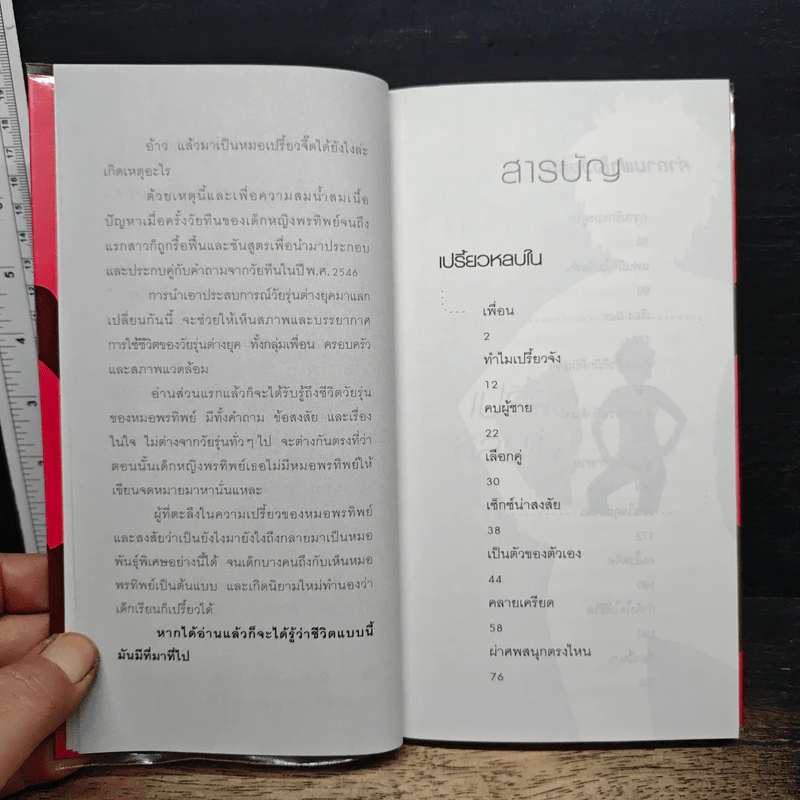 อ้าว แล้วมาเป็นหมอเปรี้ยวจี๊ดได้ยังไงล่ะ
เกิดเหตุอะไร
ด้วยเหตุนี้และเพื่อความสมน้ำสมเนื้อ
ปัญหาเมื่อครั้งวัยทีนของเด็กหญิงพรทิพย์จนถึง
แรกสาวก็ถูกรื้อฟื้นและชันสูตรเพื่อนำมาประกอบ
และประกบคู่กับคำถามจากวัยทีนในปี พ.ศ. 2546
การนำเอาประสบการณ์วัยรุ่นต่างยุคมาแลก
เปลี่ยนกันนี้ จะช่วยให้เห็นสภาพและบรรยากาศ
การใช้ชีวิตของวัยรุ่นต่างยุค ทั้งกลุ่มเพื่อน ครอบครัว
และสภาพแวดล้อม
อ่านส่วนแรกแล้วก็จะได้รับรู้ถึงชีวิตวัยรุ่น
ของหมอพรทิพย์ มีทั้งคำถาม ข้อสงสัย และเรื่อง
ในใจ ไม่ต่างจากวัยรุ่นทั่วๆ ไป จะต่างกันตรงที่ว่า
ตอนนั้นเด็กหญิงพรทิพย์เธอไม่มีหมอพรทิพย์ให้
เขียนจดหมายมาหานั่นแหละ
ผู้ที่ตะลึงในความเปรี้ยวของหมอพรทิพย์
และสงสัยว่าเป็นยังไงมายังไงถึงกลายมาเป็นหมอ
พันธุ์พิเศษอย่างนี้ได้ จนเด็กบางคนถึงกับเห็นหมอ
พรทิพย์เป็นต้นแบบ และเกิดนิยามใหม่ทำนองว่า
เด็กเรียนก็เปรี้ยวได้
หากได้อ่านแล้วก็จะได้รู้ว่าชีวิตแบบนี้
มันมีที่มาที่ไป
สารบัญ
เปรี้ยวหลบใน
เพื่อน
2
ทำไมเปรี้ยวจัง
12
คบผู้ชาย
22
เลือกคู่
30
เซ็กซ์น่าสงสัย
38
เป็นตัวของตัวเอง
44
คลายเครียด
58
ผ่าศพสนุกตรงไหน
76